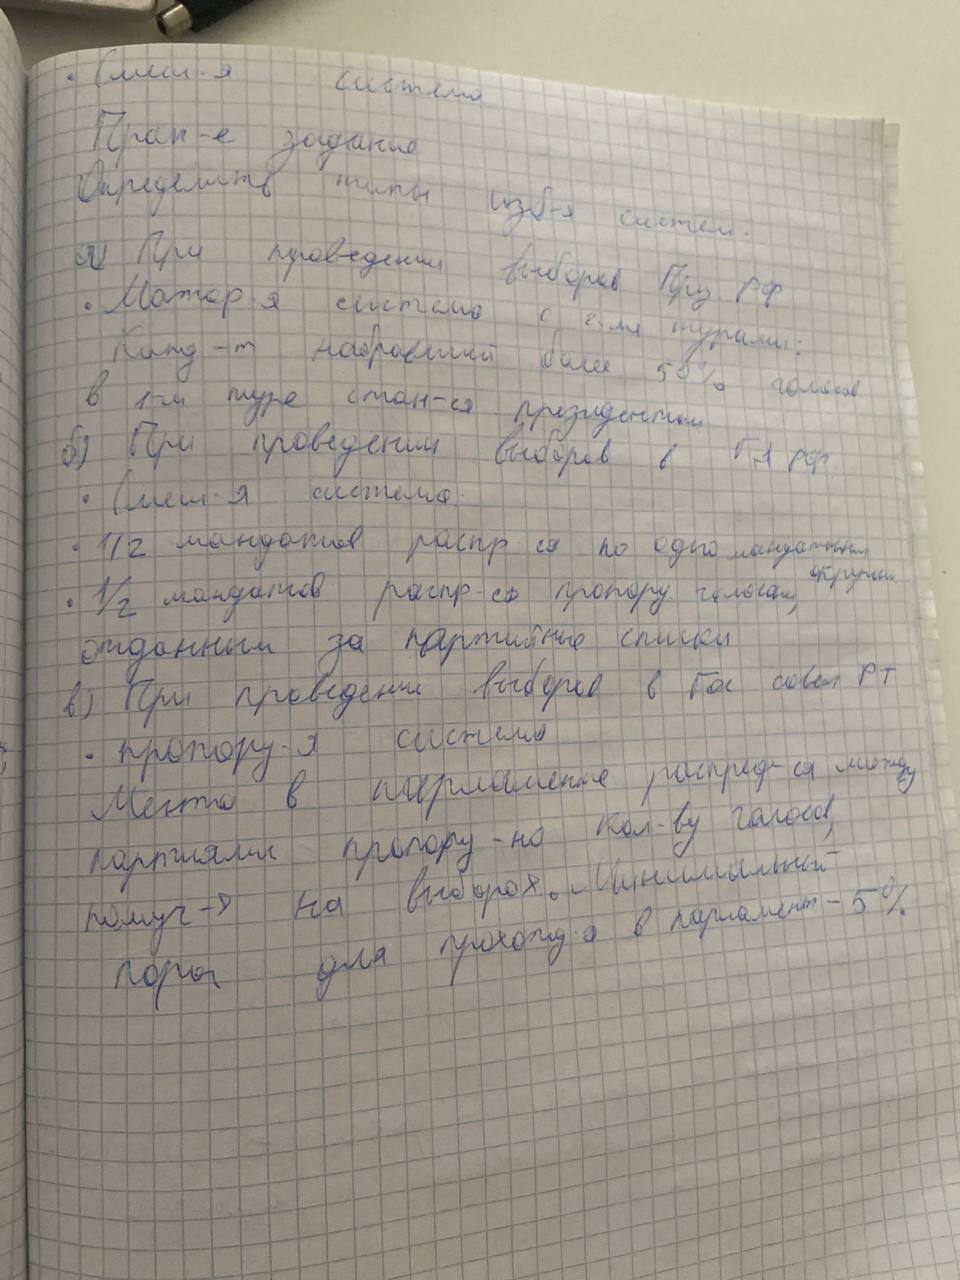 · Смеш-я система
Прак-е задание
Определить типы изб-я систем:
а) При проведении выборов През РФ
· Мажор-я система с 2-мя турами:
Канд-т набравший более 50% голосов
в 1-м туре стан-ся президентом
б) При проведении выборов в ГД РФ
· Смеш-я система.
· 1/2 мандатов распр-ся по одномандатным округам
· 1/2 мандатов распр-ся пропору. голосам,
отданным за партийные списки
в) При проведении выборов в Гос совет РТ
· пропору-я система
Места в парламенте распред-ся между
партиями пропору-но кол-ву голосов,
получ-х на выборах. Минимальный
порог для прохожд-я в парламент - 5%